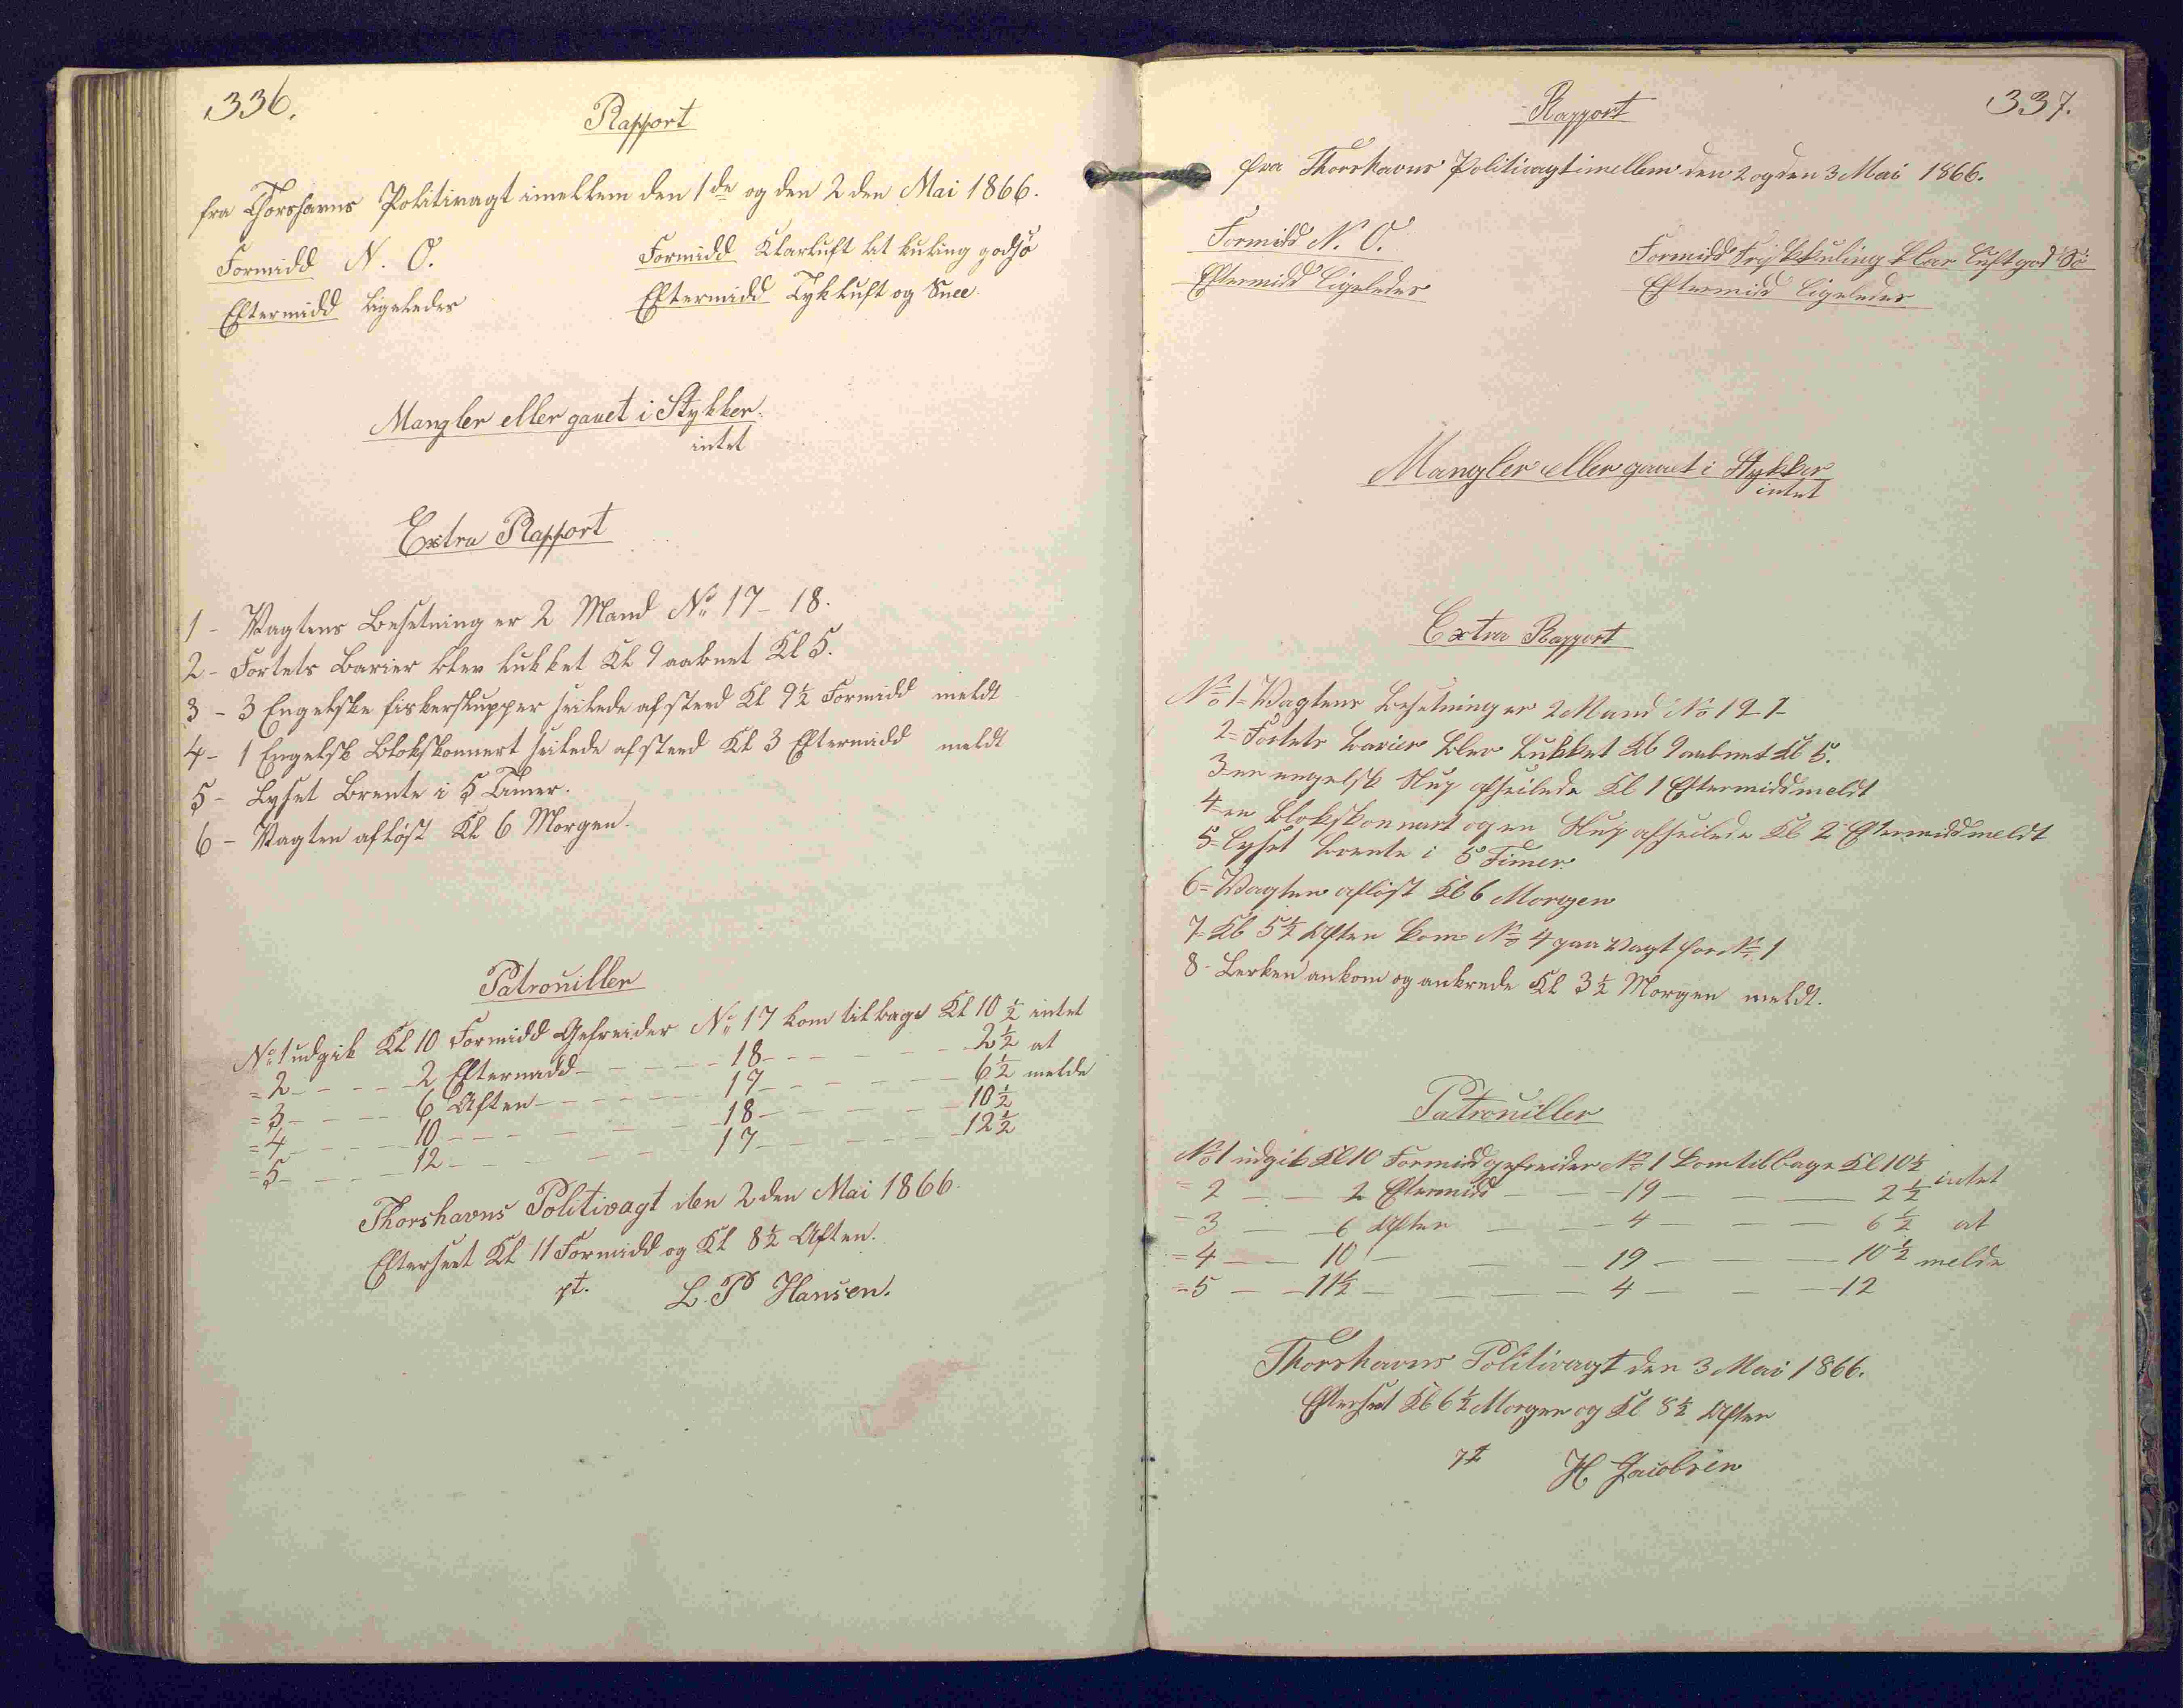 336.
Rapport
fra Thorshavns Politivagt imellem den 1de og den 2den Mai 1866.
Formidd N. O.
Eftermidd ligeledes
Formidd Klarluft let kuling godsø
Eftermidd Tykluft og Snee.
Mangler eller gaaet i Stykker.
intet
Extra Rapport
1 - Vagtens Besetning er 2 Mand No 17 - 18.
2 - Fortets Barier blev lukket Kl 9 aabnet Kl 5.
3 - 3 Engelske fiskerslupper seilede afsted Kl 9½ Formidd meldt
4 - 1 Engelsk Blokskonnert seilede afsted Kl 3 Eftermidd meldt
5 - Lyset Brente i 5 Timer.
6 - Vagten afløst Kl 6 Morgen.
Patrouiller
No 1 udgik Kl 10 Formidd Gefreider No 17 kom tilbage Kl 10½ intet
= 2 - - - - 2 Eftermidd - - - - - 18 - - - - - - 2½ at
= 3 - - - - 6 Aften - - - - - - 17 - - - - - - 6½ melde
= 4 - - - - 10 - - - - - - - 18 - - - - - 10½
= 5 - - - - 12 - - - - - - 17 - - - - - 12½
Thorshavns Politivagt den 2den Mai 1866.
Efterseet Kl 11 Formidd og Kl 8½ Aften.
pt. L. P Hansen.
337.
Rapport
fra Thorshavns Politivagt imellem den 2 og den 3 Mai 1866.
Formidd N. O.
Eftermidd ligeledes
Formidd Friskkuling klar Luft god Sö
Eftermidd ligeledes
Mangler eller gaaet i Stykker
intet
Extra Rapport
No 1 = Vagtens Besetning er 2 Mand No 19 - 1 -
2 = Fortets Barier blev lukket Kl 9 aabnet Kl 5.
3 en engelsk Slup afseilede Kl 1 Eftermidd meldt
4 = en Blokskonnart og en Slup afseilede Kl 2 Eftermidd meldt
5 = Lyset brente i 5 Timer.
6 = Vagten afløst Kl 6 Morgen
7 = Kl 5½ Aften kom No 4 paa Vagt for No 1
8 - Lerken ankom og ankrede Kl 3½ Morgen meldt.
Patrouiller
No 1 udgik Kl 10 Formidd gefreider No 1 kom tilbage Kl 10½ intet
= 2 - - 2 Eftermidd - - - 19 - - - - 2½
- 3 - - 6 Aften - - - 4 - - - 6½ at
= 4 - - 10 - - - 19 - - - 10½ melde
= 5 - - 11½ - - - - 4 - - - 12
Thorshavns Politivagt den 3 Mai 1866.
Efterseet Kl 6½ Morgen og Kl 8½ Aften
pt H. Jacobsen